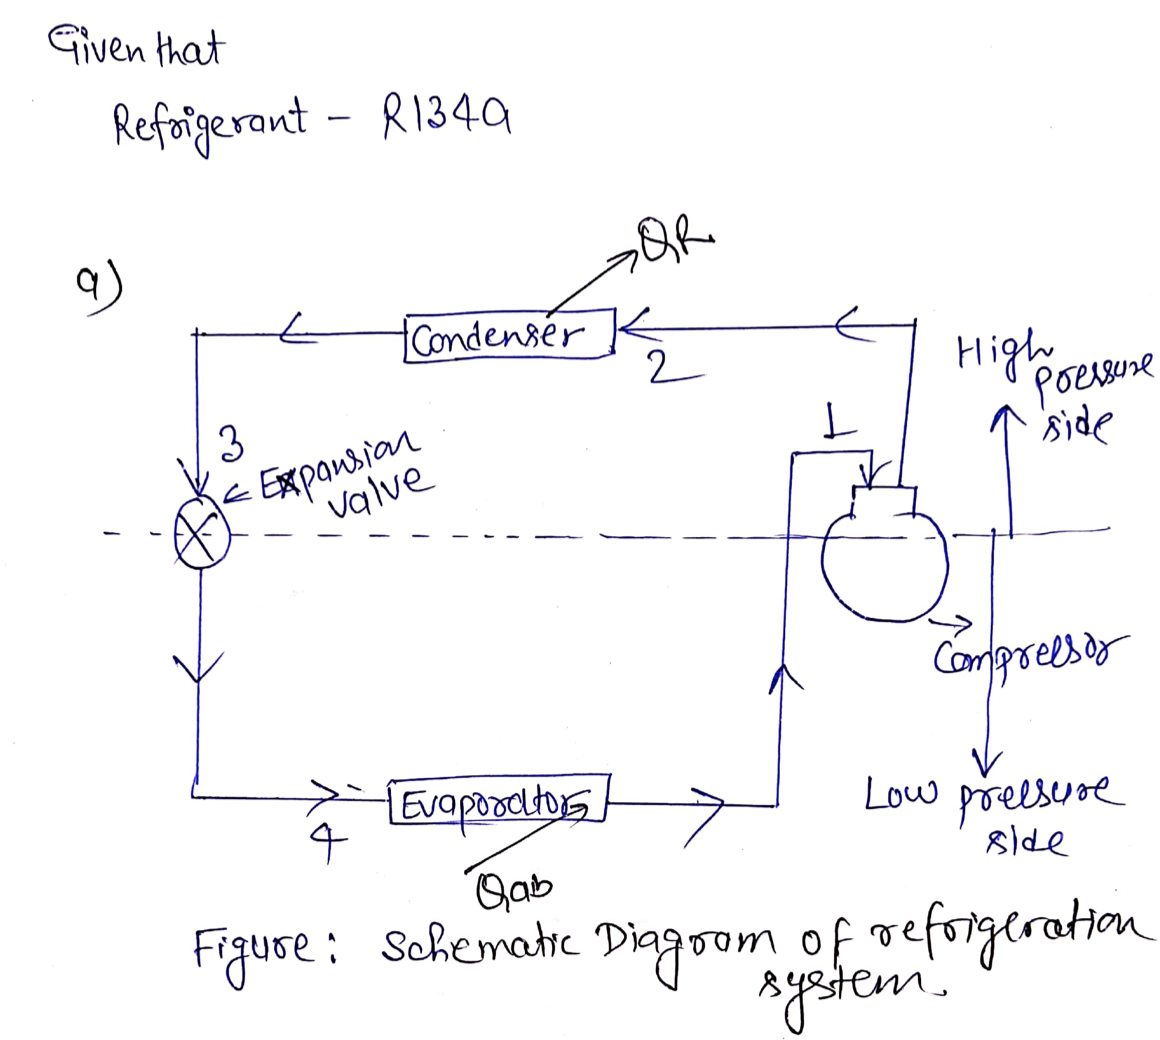 Given that
Refrigerant - R134a
a)
QR
Condenser
2
High
pressure
side
1
3
← Expansion
valve
Compressor
Low pressure
side
4
Evaporator
Qab
Figure: Schematic Diagram of refrigeration
system.